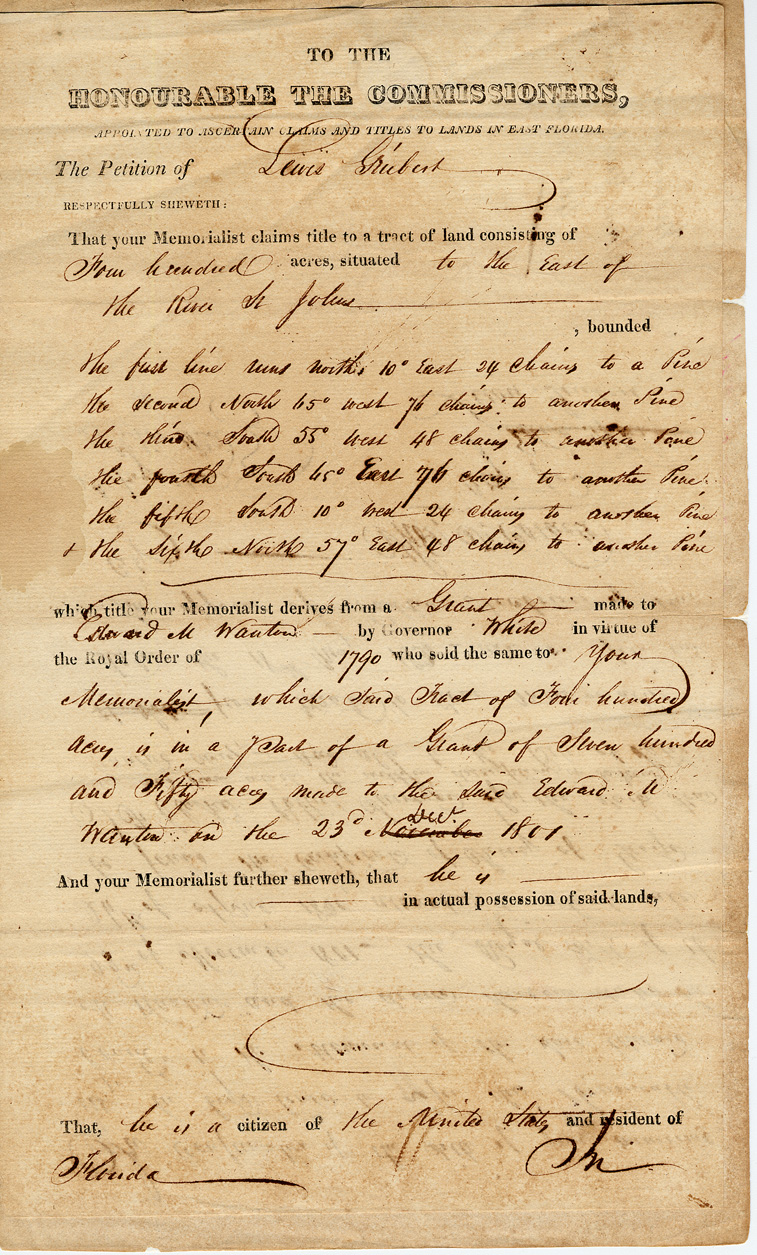 TO THE
HONOURABLE THE COMMISSIONERS,
APPOINTED TO ASCERTAIN CLAIMS AND TITLES TO LANDS IN EAST FLORIDA.
The Petition of Lewis Guibert
RESPECTFULLY SHEWETH:
That your Memorialist claims title to a tract of land consisting of
Four hundred acres, situated to the East of
the River St Johns
, bounded
the first line runs north 10° East 24 chains to a Pine
the second North 65° west 76 chains to another Pine
the third South 55° west 48 chains to another Pine
the fourth South 65° East 76 chains to another Pine
the fifth South 10° west 24 chains to another Pine
+ the Sixth North 57° East 48 chains to another Pine
which title your Memorialist derives from a Grant made to
Edward M Wanton by Governor White in virtue of
the Royal Order of 1790 who sold the same to Your
Memorialist, which Said Tract of Four hundred
acres is in a Part of a Grant of Seven hundred
and Fifty acres made to the said Edward M
Wanton on the 23d November Decr. 1801
And your Memorialist further sheweth, that he is
in actual possession of said lands,
That, he is a citizen of the United States and resident of
Florida